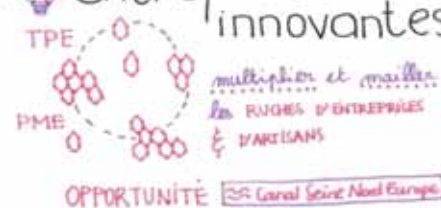 innovantes
TPE
multiplier et mailler
les RUCHES D'ENTREPRISES
PME
& D'ARTISANS
OPPORTUNITÉ Canal Seine Nord Europe